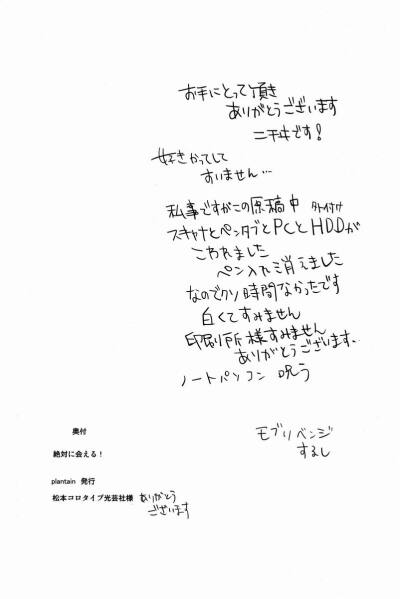 お手にとって頂き
ありがとうございます
二干ヰです!
好きかってして
すいません…
私事ですがこの原稿中 外付け
スキャナとペンタブとPCとHDDが
こわれました
ペン入れ消えました
なのでクソ時間なかったです
白くてすみません
印刷所様すみません
ありがとうございます、
ノートパソコン 呪う
モブリベンジ
するし
奥付
絶対に会える!
plantain 発行
松本コロタイプ光芸社様 ありがとう
ございます